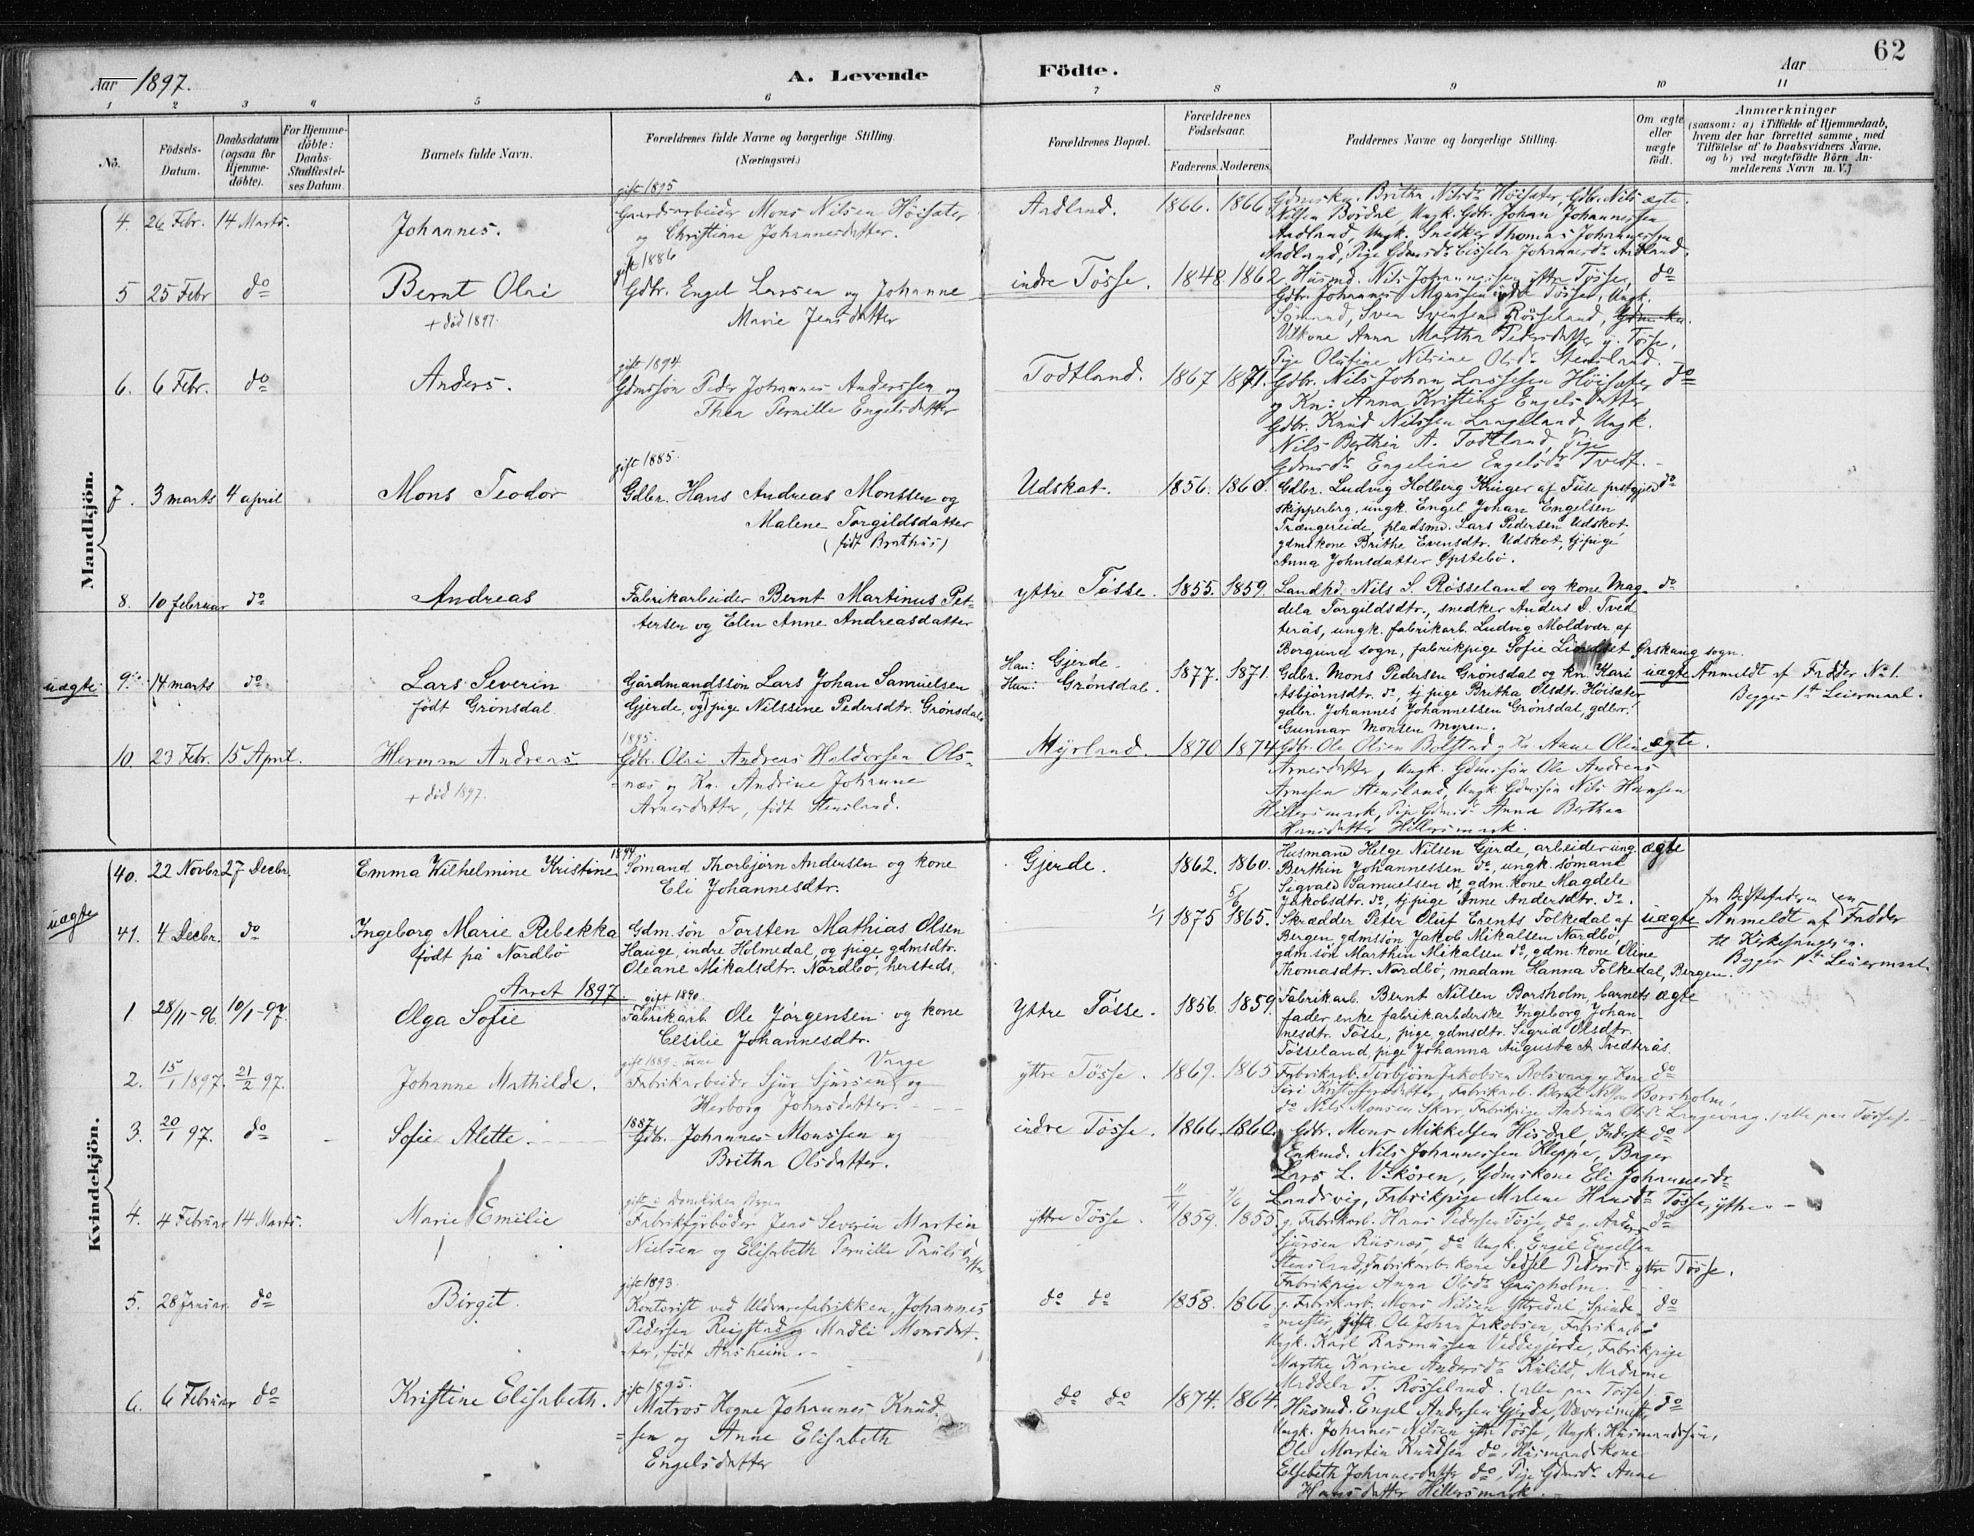 62
Aar 1897.
A. Levende Födte.
Aar
1 2 3 4 5 6 7 8 9 10 11
No.
Födsels-Datum.
Daabsdatum (ogsaa for Hjemmedöbte).
For Hjemmedöbte: Daabs-Stadfæstelses Datum.
Barnets fulde Navn.
Forældrenes fulde Navne og borgerlige Stilling.
(Næringsvei.)
Forældrenes Bopæl.
Forældrenes Födselsaar.
Faderens. Moderens.
Faddernes Navne og borgerlige Stilling.
Om ægte eller uægte födt.
Anmærkninger
(saasom: a) i Tilfælde af Hjemmedaab,
hvem der har forrettet samme, med
Tilföielse af to Daabsvidners Navne,
og b) ved uægtefödte Börn An-
melderens Navn m. V.)
Mandkjön.
gift 1895
4. 26 Febr. 14 Marts. Johannes. Gaardsarbeider Mons Nilsen Höisæter
og Christiane Johannesdatter.
Aadland. 1866. 1866
Gdmskn. Britha Nilsdr Höisæter, Gdbr. Nils
Nilsen Bördal, Ungk. Gdbr. Johan Johannessen
Aadland, Ungk. Snedker Thomas Johannessen
Aadland, Pige Gdmsdr Johannesdr Aadland.
ægte.
gift 1886
5 25 Febr do Bernt Olai
+ död 1897.
Gdbr. Engel Larsen og Johanne
Marie Jensdatter
indre Tösse. 1848. 1862.
Husmd. Nils Johannessen yttre Tösse,
Gdbr. Johannes Monssen indre Tösse, Ungk.
Sömand, Sven Svensen Rösseland,
Ulkone Anna Martha Pedersdatter y. Tösse,
Pige Olufine Nilsine Olsdr Stensland.
do
gift 1894.
6. 6 Febr. do Anders.
Gdmssön Peder Johannes Anderssen og
Thea Pernille Engelsdatter
Todtland. 1867 1871.
Gdbr. Nils Johan Lassesen Höisæter
og Kn: Anna Kristine Engelsdatter
Gdbr. Knud Nilssen Langeland, Ungk.
Nils Berthin A. Todtland, Pige
Gdmsdr Engeline Engelsdr Tvedt.
do
gift 1885.
7. 3 marts 4 april Mons Teodor
Gdbr. Hans Andreas Monssen og
Malene Torgildsdatter
(födt Brathus)
Udskot. 1856. 1860.
Gdbr. Ludvig Holberg Krüger af Fuse prstgjeld
skipperbrg, ungk. Engel Johan Engelsen
Trængereide, pladsmd. Lars Pedersen Udskot
gdmskone Brithe Evensdtr. Udskot, tjpige
Anna Johnsdatter Opstebö.
do
8. 10 februar do Andreas
Fabrikarbeider Bernt Martinus Pet-
tersen og Elen Anne Andreasdatter
yttre Tösse. 1855. 1859.
Landhd. Nils S. Rösseland og kone Mag-
dela Torgildsdtr., snedker Anders D. Tved
terås, ungk. fabrikarb. Ludvig Moldvær af
Borgund sogn, fabrikpige Sofie Lindset Ørskaug sogn.
do
uægte 9. 14 marts do Lars Severin
födt Grönsdal.
Gårdmandssön Lars Johan Samuelsen
Gjerde, og tj.pige Nilssine Pedersdtr. Grönsdal
Han: Gjerde.
Hun: Grönsdal.
1877. 1871.
Gdbr. Mons Pedersen Grönsdal og kn. Kari
Asbjörnsdtr. do, tj.pige Britha Olsdtr. Höisæter
gdbr. Johannes Johannessen Grönsdal, gdbr.
Gunnar Monsen Myren.
uægte Anmeldt af Fadder No 1.
Begges 1st Leiermaal.
1895.
10. 23 Febr. 15 April. Herman Andreas
+ död 1897.
Gdbr. Olai Andreas Haldorsen Ols-
næs og Kn. Andrine Johanne
Arnesdatter, födt Stensland.
Myrland. 1870. 1874
Gdbr. Ole Olsen Bolstad og Kn. Anne Oline
Arnesdatter, Ungk. Gdmssön Ole Andreas
Arnesen Stensland, Ungk. Gdmssön Nils Hansen
Hillersmark, Pige Gdmsdr Anna Berthea
Hansdatter Hillersmark.
ægte.
Kvindekjön.
40. 22 Novbr. 27 Decbr. Emma Wilhelmine Kristine
1894.
Sömand Thorbjörn Andersen og kone
Eli Johannesdtr.
Gjerde. 1862. 1860.
Husmand Helge Nilsen Gjerde, arbeider ung.
Berthin Johannessen do, ungk. sömand
Sigvald Samuelsen do, gdm.kone Magdele
Jakobsdtr. do, tj.pige Anne Andersdtr. do.
ægte
uægte
41. 4 Decbr. do Ingeborg Marie Rebekka
födt på Nordbö
Gdm.sön Torsten Mathias Olsen
Hauge, indre Holmedal, og pige, gdmsdtr.
Oleane Mikalsdtr. Nordbö, hersteds,
1/1 1875 5/6 1865.
Skrædder Peter Oluf Erents Folkedal af
Bergen, gdmssön Jakob Mikalsen Nordbö,
gdm.sön Marthin Mikalsen do, gdm.kone Oline
Thomasdtr. Nordbö, madam Hanna Folkedal, Bergen.
uægte Anmeldt af Fadder
til Kirkesangeren.
Begges 1ste Leiermaal
Aaret 1897
gift 1890.
1 28/11-96. 10/1-97. Olga Sofie
Fabrikarb. Ole Jörgensen og kone
Cesilie Johannesdtr.
Yttre Tösse. 1856. 1859.
Fabrikarb. Bernt Nilsen Borsholm, barnets
fader, enke fabrikarbderske Ingeborg Johan-
nesdtr. Tösse, pige, gdmsdtr. Sigrid Olsdtr.
Tösseland, pige Johanna Augusta A. Tvedterås.
ægte
gift 1889.
2. 15/1 1897. 21/2 97. Johanne Mathilde.
Vaage
Fabrikarbeider Sjur Sjursen og
Herborg Johnsdatter.
yttre Tösse. 1869. 1865
Fabrikarb. Torbjörn Jakobsen Rolsvaag og Kone
Siri Kristoffersdatter, Fabrikarb. Bernt Nilsen Borsholm,
do Nils Monsen Skar, Fabrikpige Andrina Olsdr Langevaag. (alle paa Tösse).
do
3. 20/1 97. do Sofie Alette.
1887
Gdbr. Johannes Monssen og
Britha Olsdatter.
indre Tösse. 1866. 1860.
Gdbr. Mons Mikkelsen Hisdal, Inderst
Enkmd. Nils Johannessen Kleppe, Bager
Lars L. Vikören, Gdmskone Eli Johannesdr
Landsvig, Fabrikpige Malene Hansdr Tösse, yttre
do
gift i Domkirken Bergen
4. 4 Februar 14 Marts. Marie Emilie
Fabrikfyrböder Jens Severin Martin
Nielsen og Elisabeth Pernille Paulsdatter
yttre Tösse. 1859. 1855
g. Fabrikarb. Hans Pedersen Tösse, do g. Anders
Sjursen Risnæs, do Ungk. Engel Engelsen
Stensland, Fabrikarb. kone Sedsel Pedersdr yttre Tösse.
Fabrikpige Anna Olsdr Gripsholm
do
gift 1893.
5. 28 Januar. do Birgit.
Kontorist ved Uldvarefabrikken, Johannes
Pedersen Reigstad og Madli Monsdat-
ter, födt Aarsheim.
do do 1858. 1866
g. Fabrikarb. Mons Nilsen Yttredal, Spinde-
mester, Ole Johan Jakobsen, Fabrikarb.
Ungk. Karl Rasmussen Veddegjerde, Fabrikpige
Marthe Karine Andersdr Kulild, Madame
Maddela T. Rösseland. (alle paa Tösse).
do
gift 1895.
6. 6 Februar do Kristine Elisabeth.
Matros Hogne Johannes Knud-
sen og Anne Elisabeth
Engelsdatter
do do 1874. 1864.
Husmd. Engel Andersen Gjerde, Væverimester
Ungk. Johannes Nilsen yttre Tösse, Ungk. Husmandssön,
Ole Martin Knudsen do, Husmandskone
Elsebeth Johannesdatter do, Pige Gdmsdr Anne
Hansdatter Hillersmark.
do